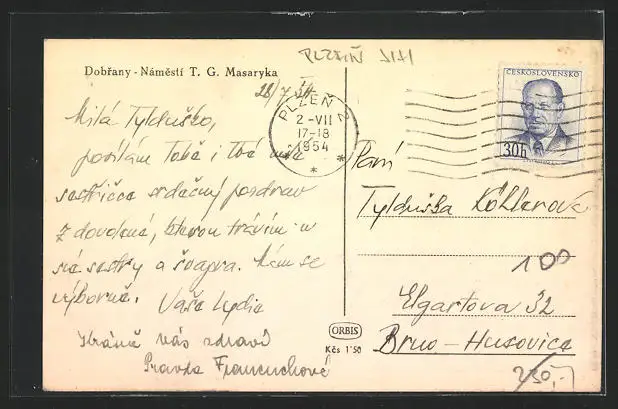 Dobřany - Náměstí T. G. Masaryka
PLZEŇ
PLZEŇ 2
2 -VII
17-18
1954
ČESKOSLOVENSKO
30h
Milá Tylduško,
posílám Tobě i Tvé milé
sestřičce srdečný pozdrav
z dovolené, kterou trávím u
své sestry a švagra. Mám se
výborně. Vaše Lydie
Krásně vás zdraví
Pravda
Paní
Tylduška Köhlerová
100
Elgartova 32
Brno - Husovice
230,-
ORBIS
Kčs 1·50